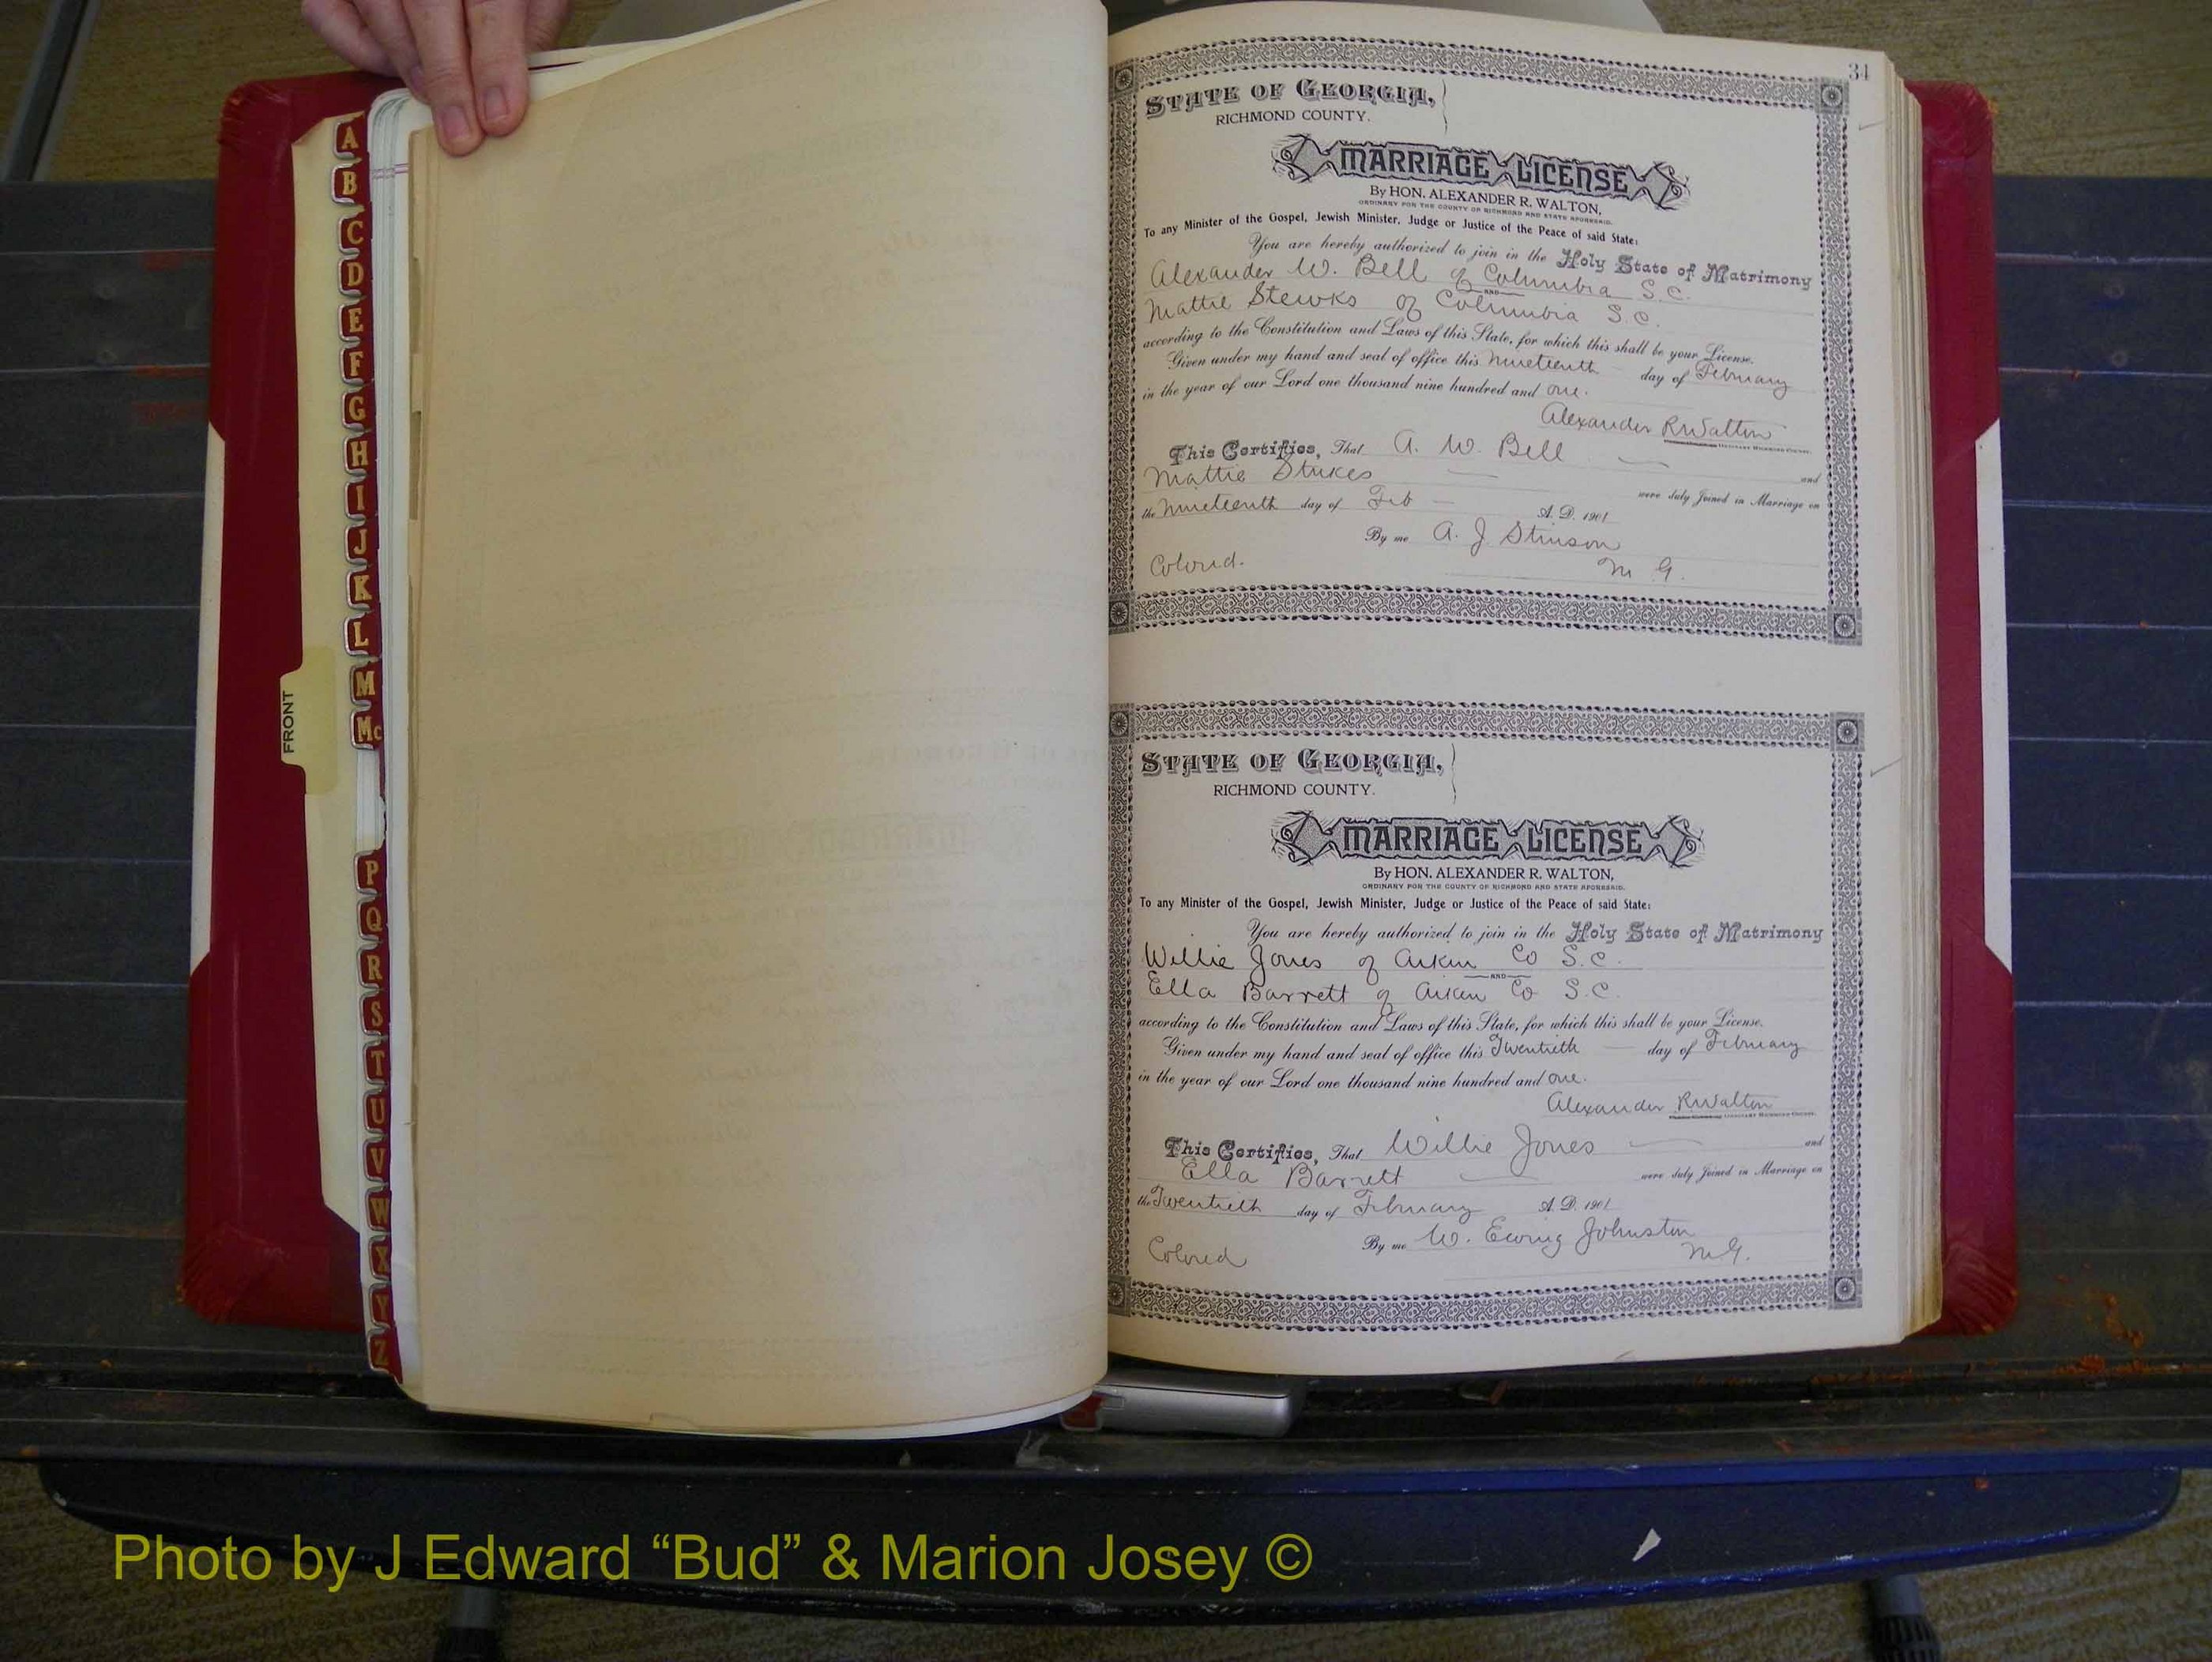 A
B
C
D
E
F
G
H
I
J
K
L
M
Mc
P
Q
R
S
T
U
V
W
X
Y
Z
FRONT
34
STATE OF GEORGIA,
RICHMOND COUNTY.
MARRIAGE LICENSE
By HON. ALEXANDER R. WALTON,
ORDINARY FOR THE COUNTY OF RICHMOND AND STATE AFORESAID.
To any Minister of the Gospel, Jewish Minister, Judge or Justice of the Peace of said State:
You are hereby authorized to join in the Holy State of Matrimony
Alexander W. Bell of Columbia S.C.
AND
Mattie Stewks of Columbia S.C.
according to the Constitution and Laws of this State, for which this shall be your License.
Given under my hand and seal of office this Nineteenth day of February
in the year of our Lord one thousand nine hundred and one.
Alexander R Walton
ORDINARY RICHMOND COUNTY.
This Certifies, That A. W. Bell
and
Mattie Stukes
were duly Joined in Marriage on
the Nineteenth day of Feb A. D. 1901
By me A. J. Stinson
Colored. M G.
STATE OF GEORGIA,
RICHMOND COUNTY.
MARRIAGE LICENSE
By HON. ALEXANDER R. WALTON,
ORDINARY FOR THE COUNTY OF RICHMOND AND STATE AFORESAID.
To any Minister of the Gospel, Jewish Minister, Judge or Justice of the Peace of said State:
You are hereby authorized to join in the Holy State of Matrimony
Willie Jones of Aiken Co S.C.
AND
Ella Barrett of Aiken Co S.C.
according to the Constitution and Laws of this State, for which this shall be your License.
Given under my hand and seal of office this Twentieth day of February
in the year of our Lord one thousand nine hundred and one.
Alexander R Walton
ORDINARY RICHMOND COUNTY.
This Certifies, That Willie Jones and
Ella Barrett were duly Joined in Marriage on
the Twentieth day of February A. D. 1901
By me W. Ewing Johnston
Colored M.G.
Photo by J Edward “Bud” & Marion Josey ©